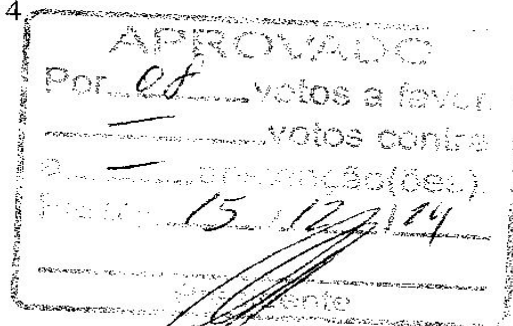 4
APROVADO
Por 08 votos a favor
— votos contra
e — abstenção(ões).
15 / 12 / 14
Presidente